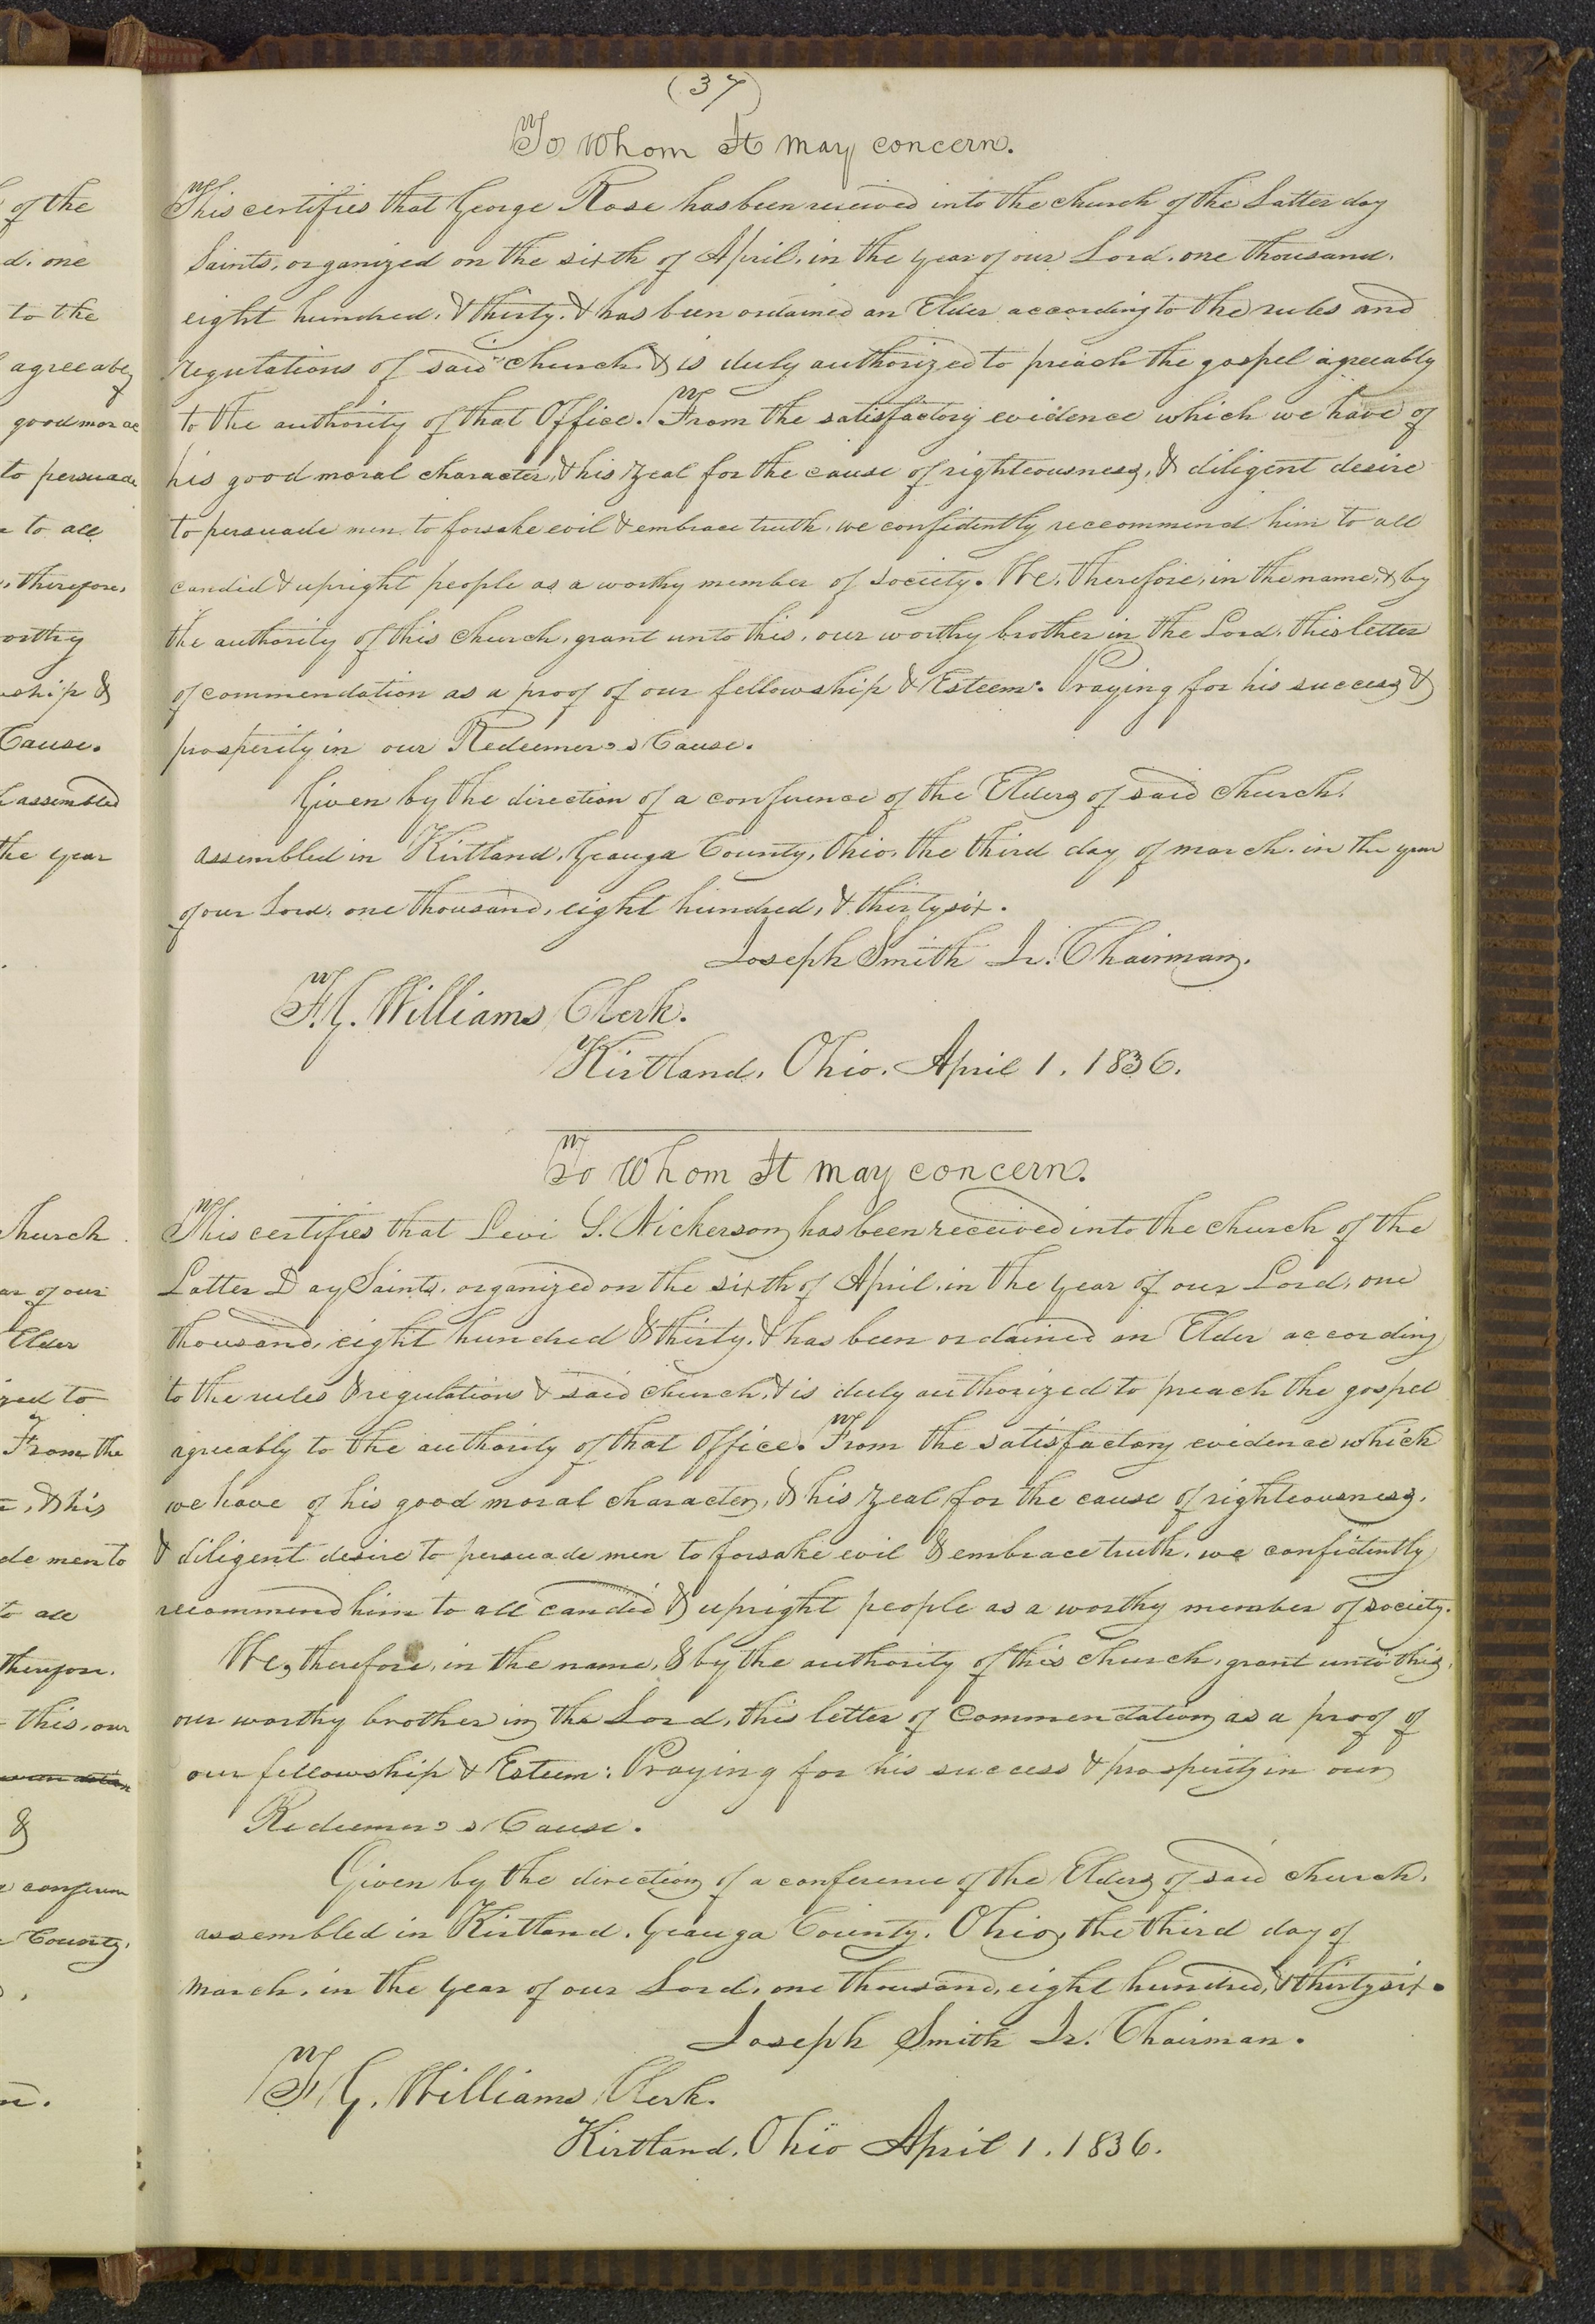 (37)
To Whom It may concern.
This certifies that George Rose has been received into the church of the Latter day
Saints, organized on the sixth of April, in the year of our Lord, one thousand,
eight hundred, & thirty, & has been ordained an Elder according to the rules and
regulations of said church, & is duly authorized to preach the gospel agreeably
to the authority of that Office. From the satisfactory evidence which we have of
his good moral character, & his zeal for the cause of righteousness, & diligent desire
to persuade men to forsake evil & embrace truth, we confidently reccommend him to all
candid & upright people as a worthy member of society. We, therefore, in the name, & by
the authority of this church, grant unto this, our worthy brother in the Lord, this letter
of commendation as a proof of our fellowship & Esteem: Praying for his success &
prosperity in our Redeemer's Cause.
Given by the direction of a conference of the Elders of said church,
assembled in Kirtland, Geauga County, Ohio, the third day of march, in the year
of our Lord, one thousand, eight hundred, & thirty six.
Joseph Smith Jr. Chairman.
F. G. Williams Clerk.
Kirtland, Ohio, April 1, 1836.
To Whom It may concern.
This certifies that Levi S. Nickerson has been received into the church of the
Latter Day Saints, organized on the sixth of April, in the year of our Lord, one
thousand, eight hundred & thirty, & has been ordained an Elder according
to the rules & regulations & said church, & is duly authorized to preach the gospel
agreeably to the authority of that Office. From the satisfactory evidence which
we have of his good moral character, & his zeal for the cause of righteousness,
& diligent desire to persuade men to forsake evil & embrace truth, we confidently
recommend him to all candid & upright people as a worthy member of society.
We, therefore, in the name, & by the authority of this church, grant unto this,
our worthy brother in the Lord, this letter of Commendation as a proof of
our fellowship & Esteem: Praying for his success & prosperity in our
Redeemer's Cause.
Given by the direction of a conference of the Elders of said church,
assembled in Kirtland, Geauga County, Ohio, the third day of
March, in the year of our Lord, one thousand, eight hundred, & thirty six.
Joseph Smith Jr. Chairman.
F. G. Williams Clerk.
Kirtland, Ohio April 1, 1836.